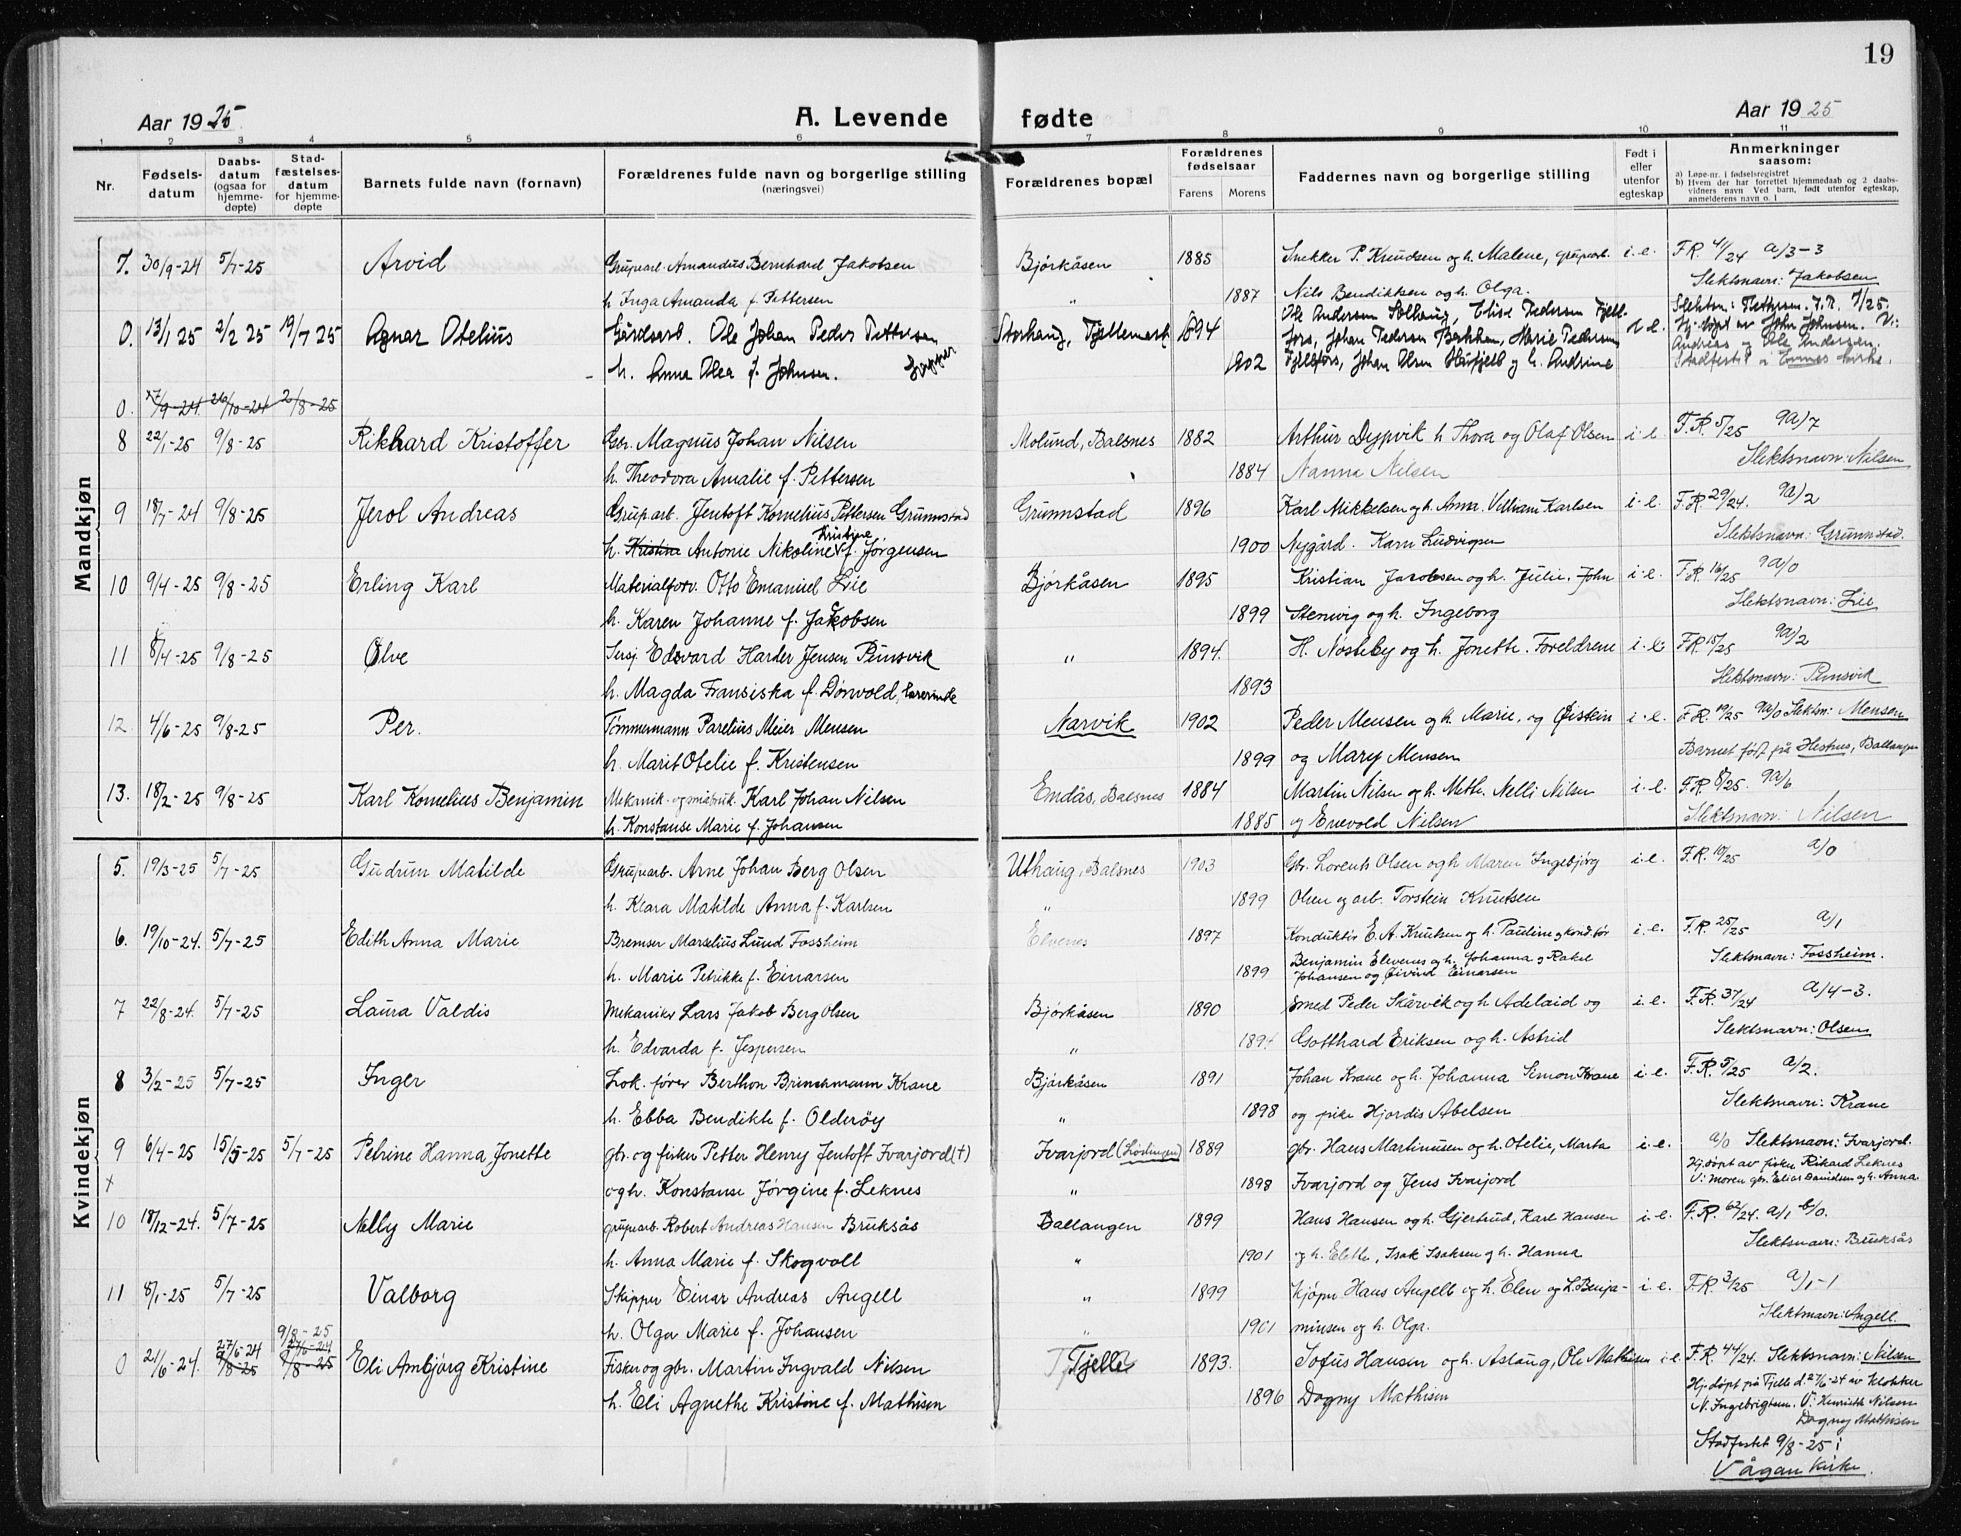 19
Aar 1925
A. Levende fødte
Aar 1925
1 2 3 4 5 6 7 8 9 10 11
Nr.
Fødsels-
datum
Daabs-
datum
(ogsaa for
hjemme-
døpte)
Stad-
fæstelses-
datum
for hjemme-
døpte
Barnets fulde navn (fornavn)
Forældrenes fulde navn og borgerlige stilling
(næringsvei)
Forældrenes bopæl
Forældrenes
fødselsaar
Farens Morens
Faddernes navn og borgerlige stilling
Født i
eller
utenfor
egteskap
Anmerkninger
saasom:
a) Løpe-nr. i fødselsregistret
b) Hvem der har forrettet hjemmedaab og 2 daabs-
vidners navn Ved barn, født utenfor egteskap,
anmelderens navn o. l
Mandkjøn
7. 30/9-24 5/7-25 Arvid Gruparb. Amandus Bernhard Jakobsen Bjørkåsen 1885 Snekker P. Knudsen og h. Malene, gruparb. i.e. F.R. 41/24 a/3-3
h. Inga Amanda f. Pettersen " 1887 Nils Bendiktsen og h. Olga. Slektsnavn: Jakobsen
0. 13/1 25 2/2 25 19/7 25 Agnar Otelius Gårdsarb. Ole Johan Peder Pettersen Storhaug, Tjeldemark 1894 Ole Andersen Solhaug, Elise Pedersen Fjell-
fors, Johan Pedersen Bakken, Marie Pedersen i.e.
h. Anna Olea f. Johnsen. 1902 Fjellfors, Johan Olsen Haufjell og h. Andrine
Slektsn: Pettersen. F.R. 1/25.
Hj. døpt av John Johnsen. V:
Andreas og Ole Andersen.
Stadfestet i Evenes kirke.
0. 27/9-24. 26/10-24 2/8-25
8 22/1-25 9/8-25 Rikhard Kristoffer Gbr. Magnus Johan Nilsen Molund, Balsnes 1882 Arthur Dypvik h Thora og Olaf Olsen i.e. F.R. 5/25 9a/7
h. Theodora Amalie f. Pettersen 1884 Nanna Nilsen Slektsnavn: Nilsen
9 18/7-24 9/8-25 Jerol Andreas Gruparb. Jentoft Kornelius Pettersen Grunnstad Grunnstad 1896 Karl Mikkelsen og h. Anna. Vilham Karlsen i.e. F.R. 29/24. 9a/2
h. Kristine Antonie Nikoline Kristine f. Jørgensen 1900 Nygård. Karn Ludvigsen Slektsnavn: Grunnstad.
10 9/4-25 9/8-25 Erling Karl Materialforv. Otto Emanuel Lie Bjørkåsen 1895 Kristian Jacobsen og h. Julie. John i.e. F.R. 16/25 9a/0
h. Karen Johanne f. Jakobsen 1899 Stenvig og h. Ingeborg Slektsnavn: Lie
11 8/4-25 9/8-25 Ølve Sersj. Edvard Harder Jensen Punsvik " 1894. H. Nosteby og h. Jonette. Foreldrene i.e. F.R. 15/25 9a/2
h. Magda Fransiska f. Dønvold, lærerinde 1893 Slektsnavn: Punsvik
12. 4/6-25 9/8-25 Per. Tømmermann Parelius Meier Mensen Narvik 1902 Peder Mensen og h. Marie, og Øistein i.e. F.R. 19/25 9a/0 Slektsn: Mensen
h. Marit Otelie f. Kristensen 1899 og Mary Mensen Barnet født på Hestnes, Ballangen
13. 18/2-25 9/8-25 Karl Kornelius Benjamin Mekanik. og småbruk. Karl Johan Nilsen Emdås, Balsnes 1884 Martin Nilsen og h. Mette. Nelli Nilsen i.e. F.R. 8/25. 9a/6
h. Konstanse Marie f. Johansen 1885 og Enevold Nilsen Slektsnavn: Nilsen
Kvindekjøn
5. 19/3-25 5/7-25 Gudrun Matilde Gruparb. Arne Johan Berg Olsen Uthaug, Balsnes 1903 Gbr. Lorents Olsen og h Maren Ingebjørg i.e. F.R. 10/25 a/0
h. Klara Matilde Anna f. Karlsen " 1899 Olsen og arb. Torstein Knutsen
6. 19/10-24. 5/7-25 Edith Anna Marie Bremser Marselius Lund Fossheim Elvenes 1897 Konduktør E. A. Knutsen og h. Pauline og konduktør i.e. F.R. 25/25 a/1
h. Marie Petrikke f. Einarsen 1899 Benjamin Elevenes og h. Johanna og Rakel
Johansen og Øivind Einarsen Slektsnavn: Fossheim.
7 22/8-24. 5/7-25 Laura Valdis Mekaniker Lars Jakob Berg Olsen Bjørkåsen 1890 Smed Peder Skårvik og h Adelaid og i.e. F.R. 37/24 a/4-3.
h. Edvarda f. Jespersen " 1894 Gotthard Eriksen og h. Astrid Slektsnavn: Olsen
8 3/2-25 5/7-25 Inger Lok. fører Berthon Brinchmann Krane Bjørkåsen 1891 Johan Krane og h. Johanna Simon Krane i.e. F.R. 5/25 a/2.
h. Ebba Bendikte f. Olderøy " 1898 og pike Hjordis Abelsen Slektsnavn: Krane
9 6/4-25 15/5-25 5/7-25 Petrine Hanna Jonette gbr. og fisker Petter Henry Jentoft Ivarjord (†) Ivarjord (Lødingen) 1889 gbr. Hans Martinusen og h. Otelie, Marta i.e. a/0 Slektsnavn: Ivarjord.
+ og h. Konstanse Jørgine f. Leknes " 1898 Ivarjord og Jens Ivarjord
Hj. døpt av fisker Rikard Leknes
V: moren gbr. Elias Danielsen og h. Anna.
10 18/12-24. 5/7-25 Nelly Marie gruparb. Robert Andreas Hansen Bruksås Ballangen 1899 Hans Hansen og h. Gjertrud, Karl Hansen i.e. F.R. 62/24. a/1 b/0.
h. Anna Marie f. Skogvoll " 1901 og h. Elette, Isak Isaksen og h. Hanna Slektsnavn: Bruksås
11 8/1-25 5/7-25 Valborg Skipper Einar Andreas Angell " 1899 Kjøpm Hans Angell og h. Elen og L. Benja- i.e. F.R. 3/25 a/1-1
h. Olga Marie f. Johansen " 1901 minsen og h. Olga. Slektsnavn: Angell
0 21/6-24. 27/6-24 9/8-25 9/8-25 27/6-24 9/8-25 Eli Ambjørg Kristine Fisker og gbr. Martin Ingvald Nilsen Tjelle 1893. Sofus Hansen og h. Aslaug, Ole Mathisen i.e. F.R. 44/24. Slektsnavn: Nilsen
h. Eli Agnethe Kristine f. Mathisen 1896 Dagny Mathisen
Hj. døpt på Tjelle d. 27/6-24 av klokker
N. Ingebrigtsen. V: Henriette Nilsen
Dagny Mathisen
Stadfestet 9/8-25 i
Vågan kirke.